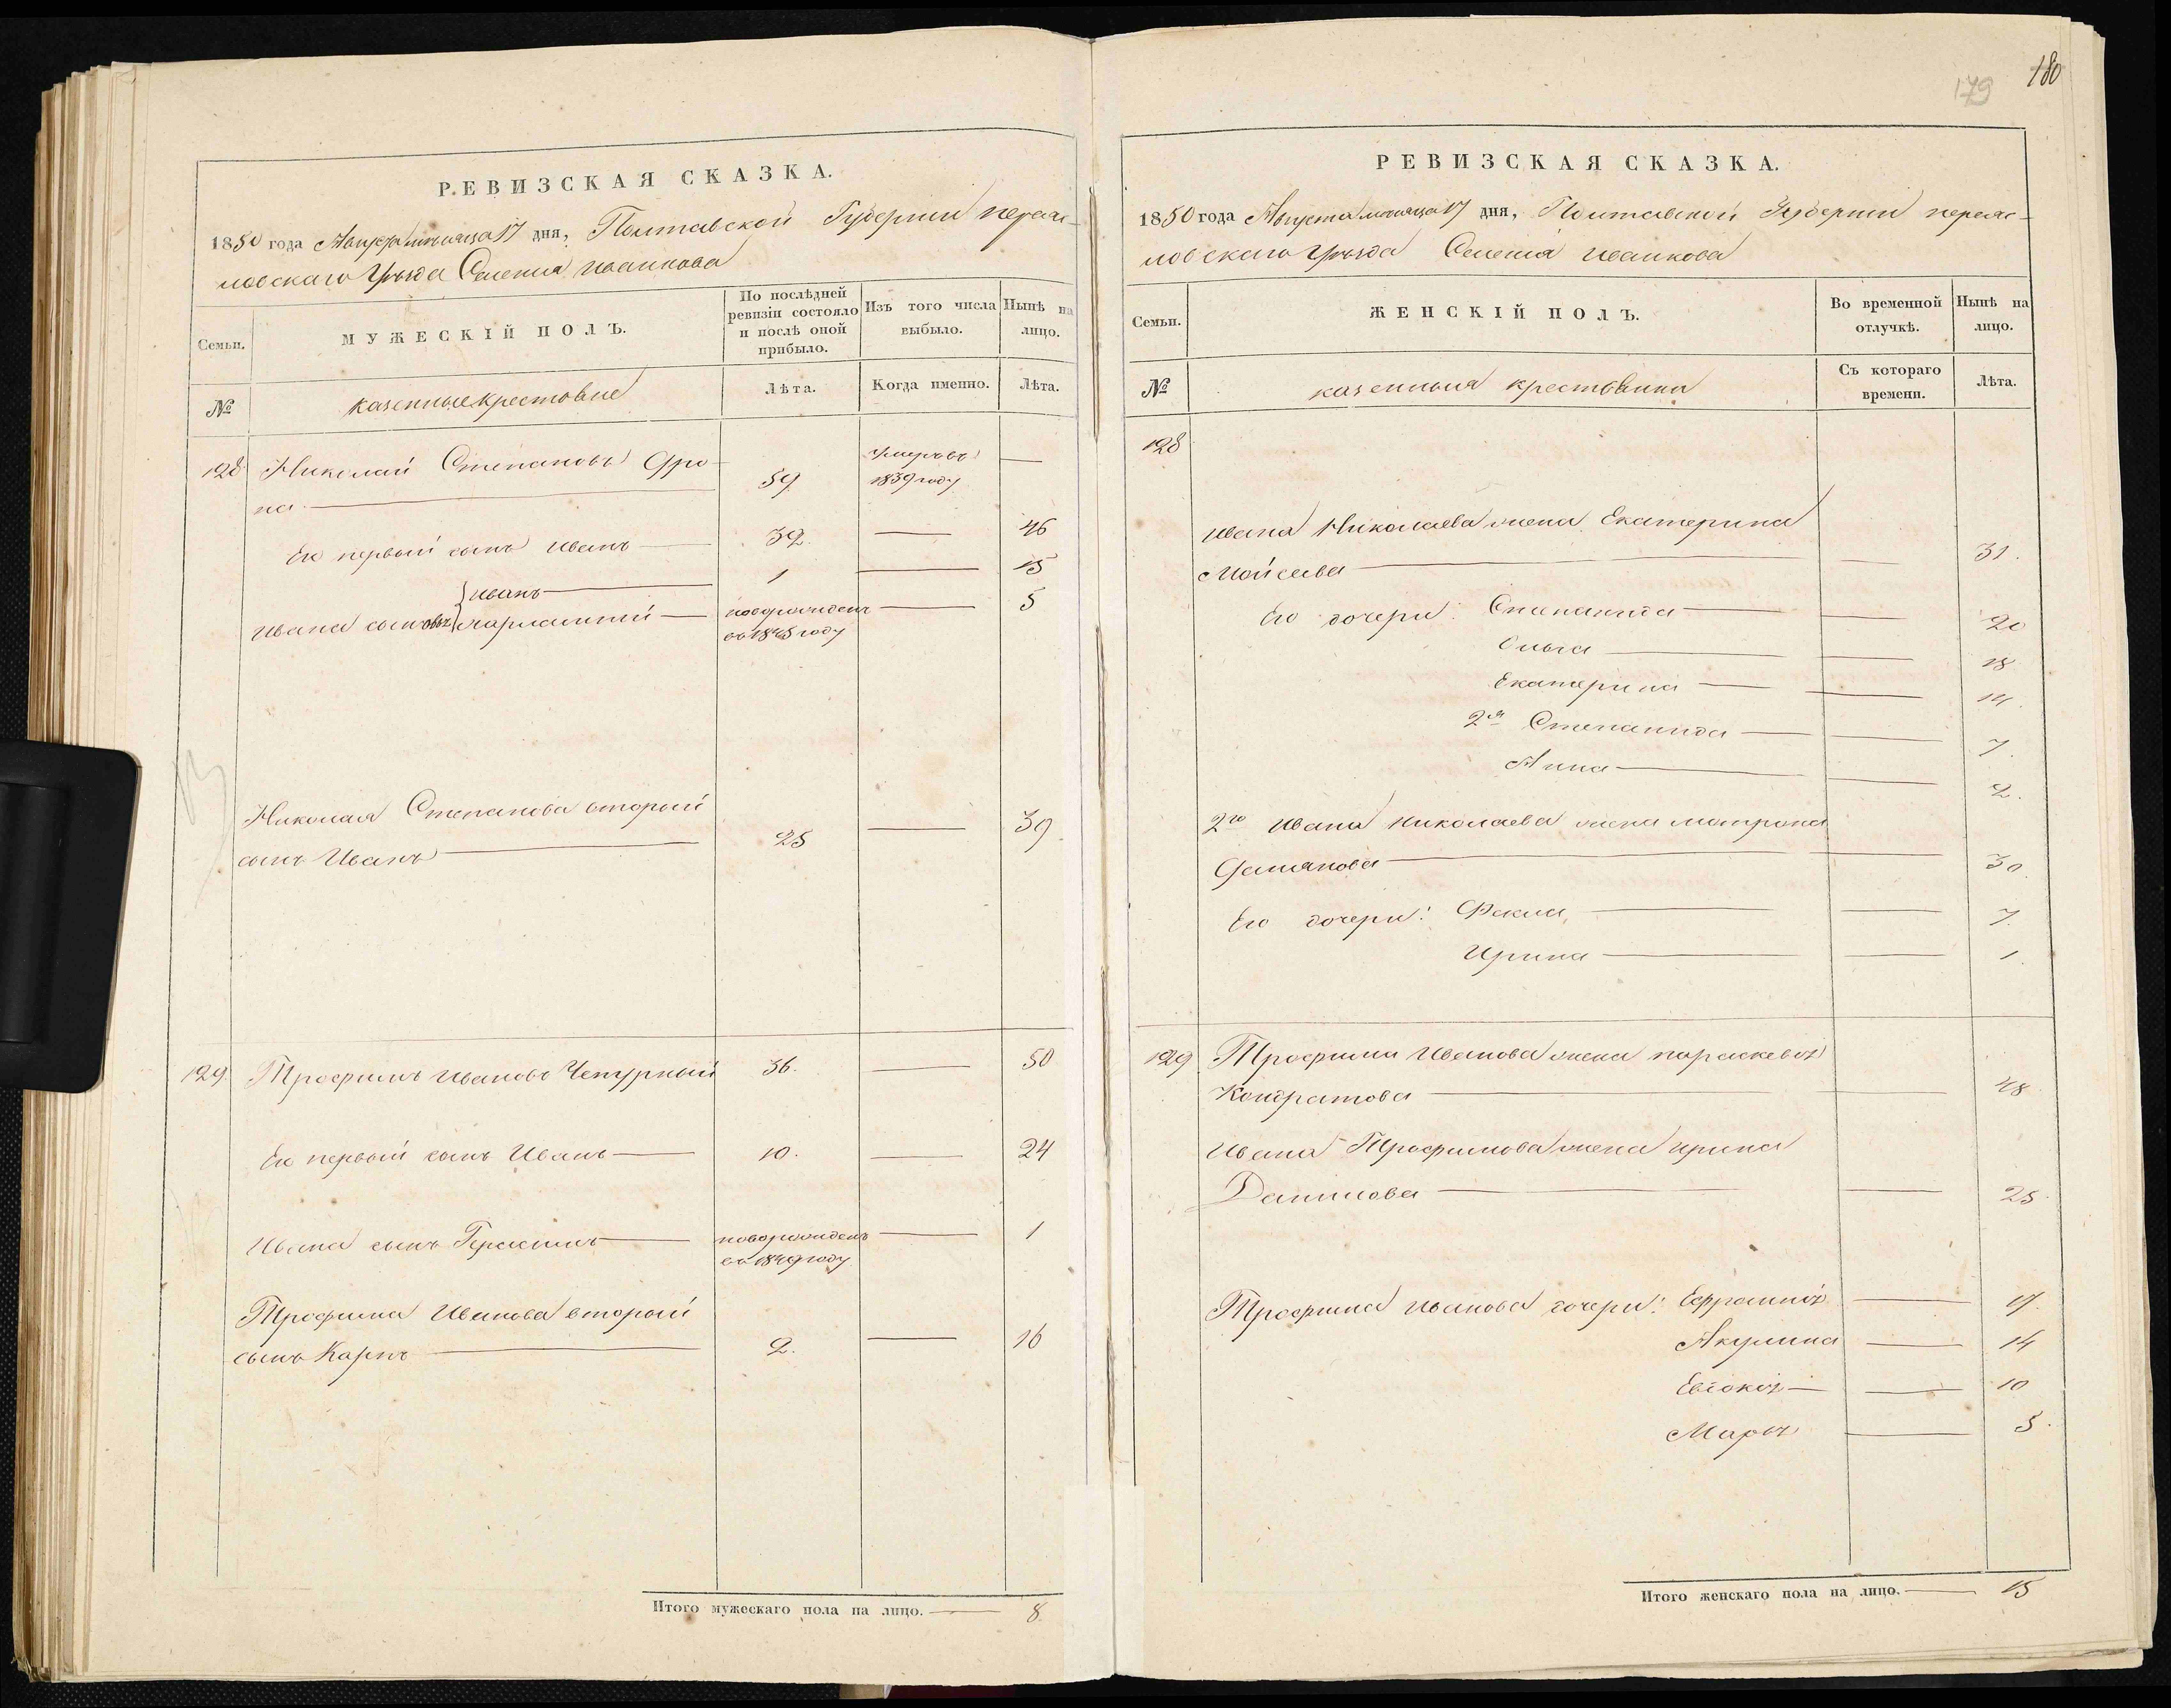 РЕВИЗСКАЯ СКАЗКА.
1850 года Августа мѣсяца 17 дня, Полтавской Губернии переяс-
ловскаго Уѣзда Селенія иванкова
Семьи.
МУЖЕСКІЙ ПОЛЪ.
По послѣдней ревизіи состояло и послѣ оной прибыло.
Изъ того числа выбыло.
Нынѣ на лицо.
№
казенные крестьяне
Лѣта.
Когда именно.
Лѣта.
128 Николай Степановъ
на 59 умеръ въ 1839 году —
Его первый сынъ иванъ 32. — 46
иванъ 1 — 15
Ивана сыновья Харлампий новорожденъ въ 1845 году — 5
Николая Степанова второй
сынъ Иванъ 25 — 39
129. Трофимъ Ивановъ Чепурный 36. — 50
Его первый сынъ Иванъ 10. — 24
Ивана сынъ Герасимъ новорожденъ въ 1849 году — 1
Трофима Иванова второй
сынъ Карпъ 2. — 16
Итого мужескаго пола на лицо. — 8
179 180
РЕВИЗСКАЯ СКАЗКА.
1850 года Августа мѣсяца 17 дня, Полтавской Губернии переяс-
ловскаго Уѣзда Селенія иванкова
Семьи.
ЖЕНСКІЙ ПОЛЪ.
Во временной отлучкѣ.
Нынѣ на лицо.
№
казенныя крестьянки
Съ котораго времени.
Лѣта.
128
ивана Николаева жена Екатерина
Мойсеева — 31.
Его дочери: Степанида — 20
Ольга — 18
Екатерина — 14.
2я Степанида — 7.
Анна — 2.
2го Ивана Николаева жена матрона
Демянова — 30.
Его дочери: Фекла — 7.
Ирина — 1.
129 Трофима Иванова жена параскева
Кондратова — 48
Ивана Трофимова жена ирина
Данилова — 25.
Трофима Иванова дочери: — 17.
Акулина — 14
Евдокія — 10
Марья — 5.
Итого женскаго пола на лицо. — 15